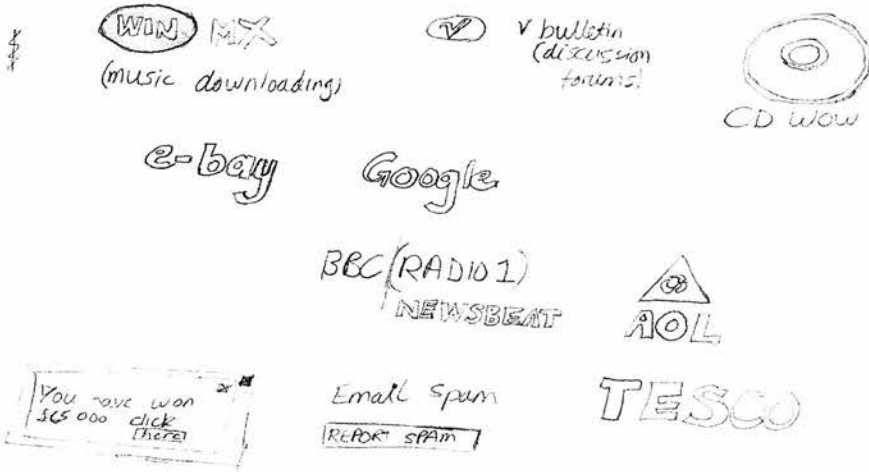 WIN MX
(music downloading)
V
v bulletin
(discussion
forums)
CD WOW
e-bay
Google
BBC (RADIO 1)
NEWSBEAT
AOL
You have won
$65 000 click
here
Email Spam
REPORT SPAM
TESCO